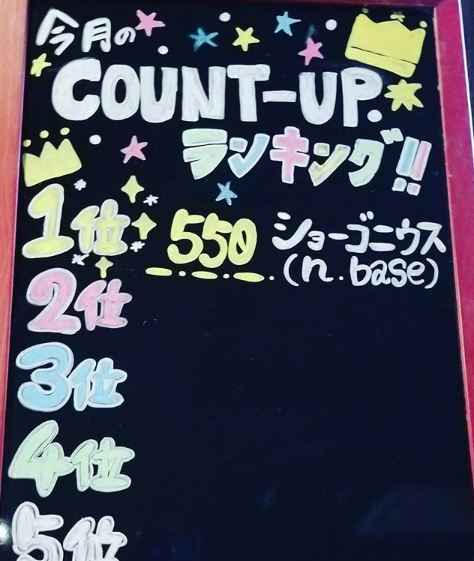 今月の
COUNT-UP.
ランキング!!
1位 550 ショーゴニウス
(n.base)
2位
3位
4位
5位